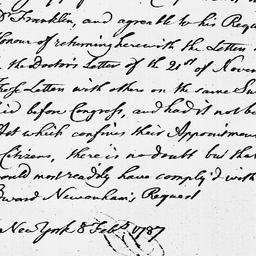 Dr Franklin, and agreable to his Requ
Honour of returning herewith the Letters
the Doctor's Letter of the 21st of Nove
These Letters with others on the same Su
laid before Congress, and had it not be
Act which confines their Appointme
Citizens, there is no doubt but that
would most readily have comply'd with
Edward Newenham's Request
New York 8 Feby 1787